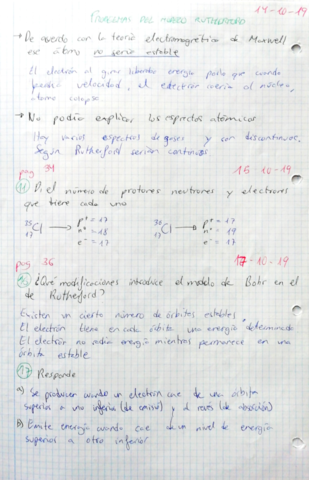 14-10-19
PROBLEMAS DEL MODELO RUTHERFORD
→ De acuerdo con la teoría electromagnética de Maxwell
ese átomo no sería estable
El electrón al girar liberando energía por lo que cuando
perdía velocidad, el electrón caería al núcleo,
átomo colapsa
→ No podía explicar los espectros atómicos
Hay varios espectros de gases y son discontinuos,
Según Rutherford serían continuos
pag 34 16-10-19
11 Di el número de protones neutrones y electrones
que tiene cada uno
35 17 Cl → p+ = 17 n° = 18 e- = 17
17 Cl → p+ = 17 n° = 19 e- = 17
pag 36 17-10-19
¿Qué modificaciones introduce el modelo de Bohr en el
de Rutherford?
Existen un cierto número de órbitas estables
El electrón tiene en cada órbita una energía determinada
El electrón no radia energía mientras permanece en una
órbita estable
17 Responde
a) Se producen cuando un electrón cae de una órbita
superior a una inferior (de emisión) y al revés (de absorción)
b) Emite energía cuando cae de un nivel de energía
superior a otro inferior.